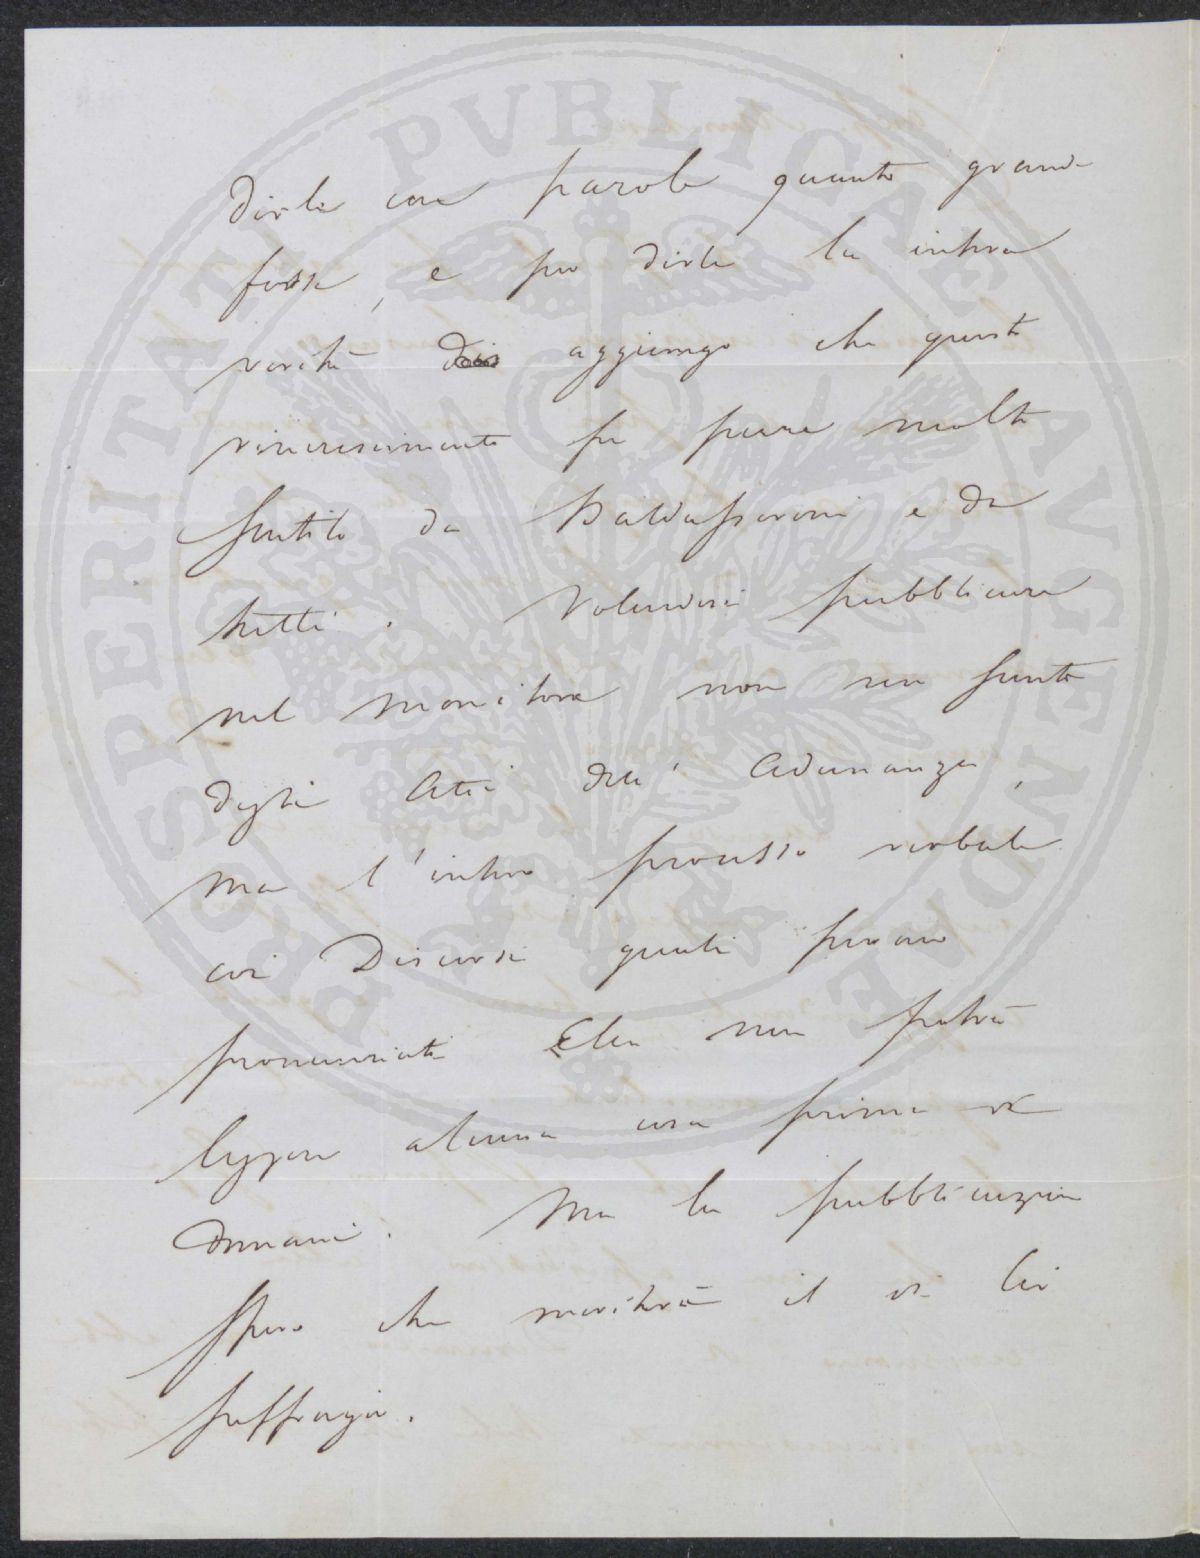 dirle con parole quanto grande
fosse, e per dirle la intera
verità aggiungo che questo
rincrescimento fu pure molto
sentito da Baldasseroni e da
tutti. Volendosi pubblicare
nel Monitore non un sunto
degli Atti dell'Adunanza,
ma l'intero processo verbale
coi Discorsi quali furono
pronunziati Ella non potrà
leggere alcuna cosa prima di
domani. Ma la pubblicazione
spero che meriterà il di Lei
suffragio.
PROSPERITATI PVBLICAE AVGENDAE